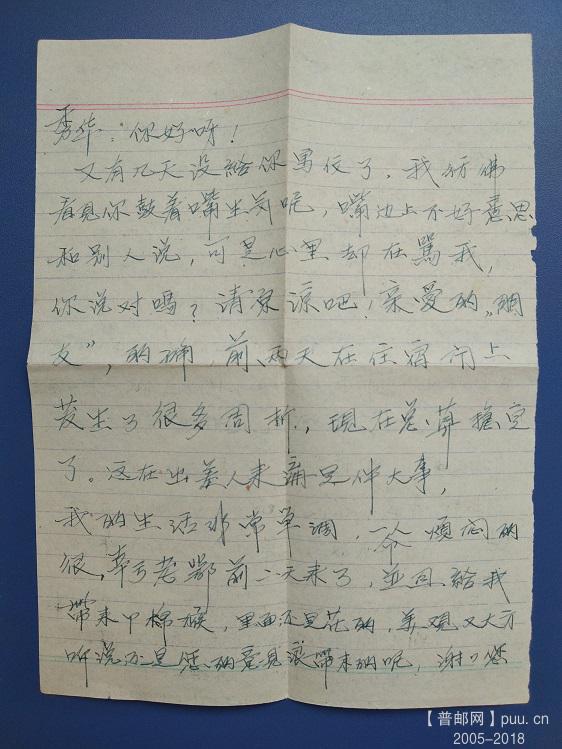 秀华：你好呀！
又有几天没给你写信了，我彷佛
看見你鼓着嘴生气呢，嘴边上不好意思
和别人说，可是心里却在罵我，
你说对嗎？请原谅吧！亲爱的“朋
友”，的确，前两天在住宿问上
发生了很多周折，現在总算稳定
了。这在出差人来痛是件大事，
我的生活非常单调，一个人煩闷的
很，幸亏老鄒前二天来了，並且给我
帶来甲棉猴，里面还是花的，美观又大方
听说还是您的意見讓帶来的呢，谢谢您
【普邮网】puu.cn
2005-2018